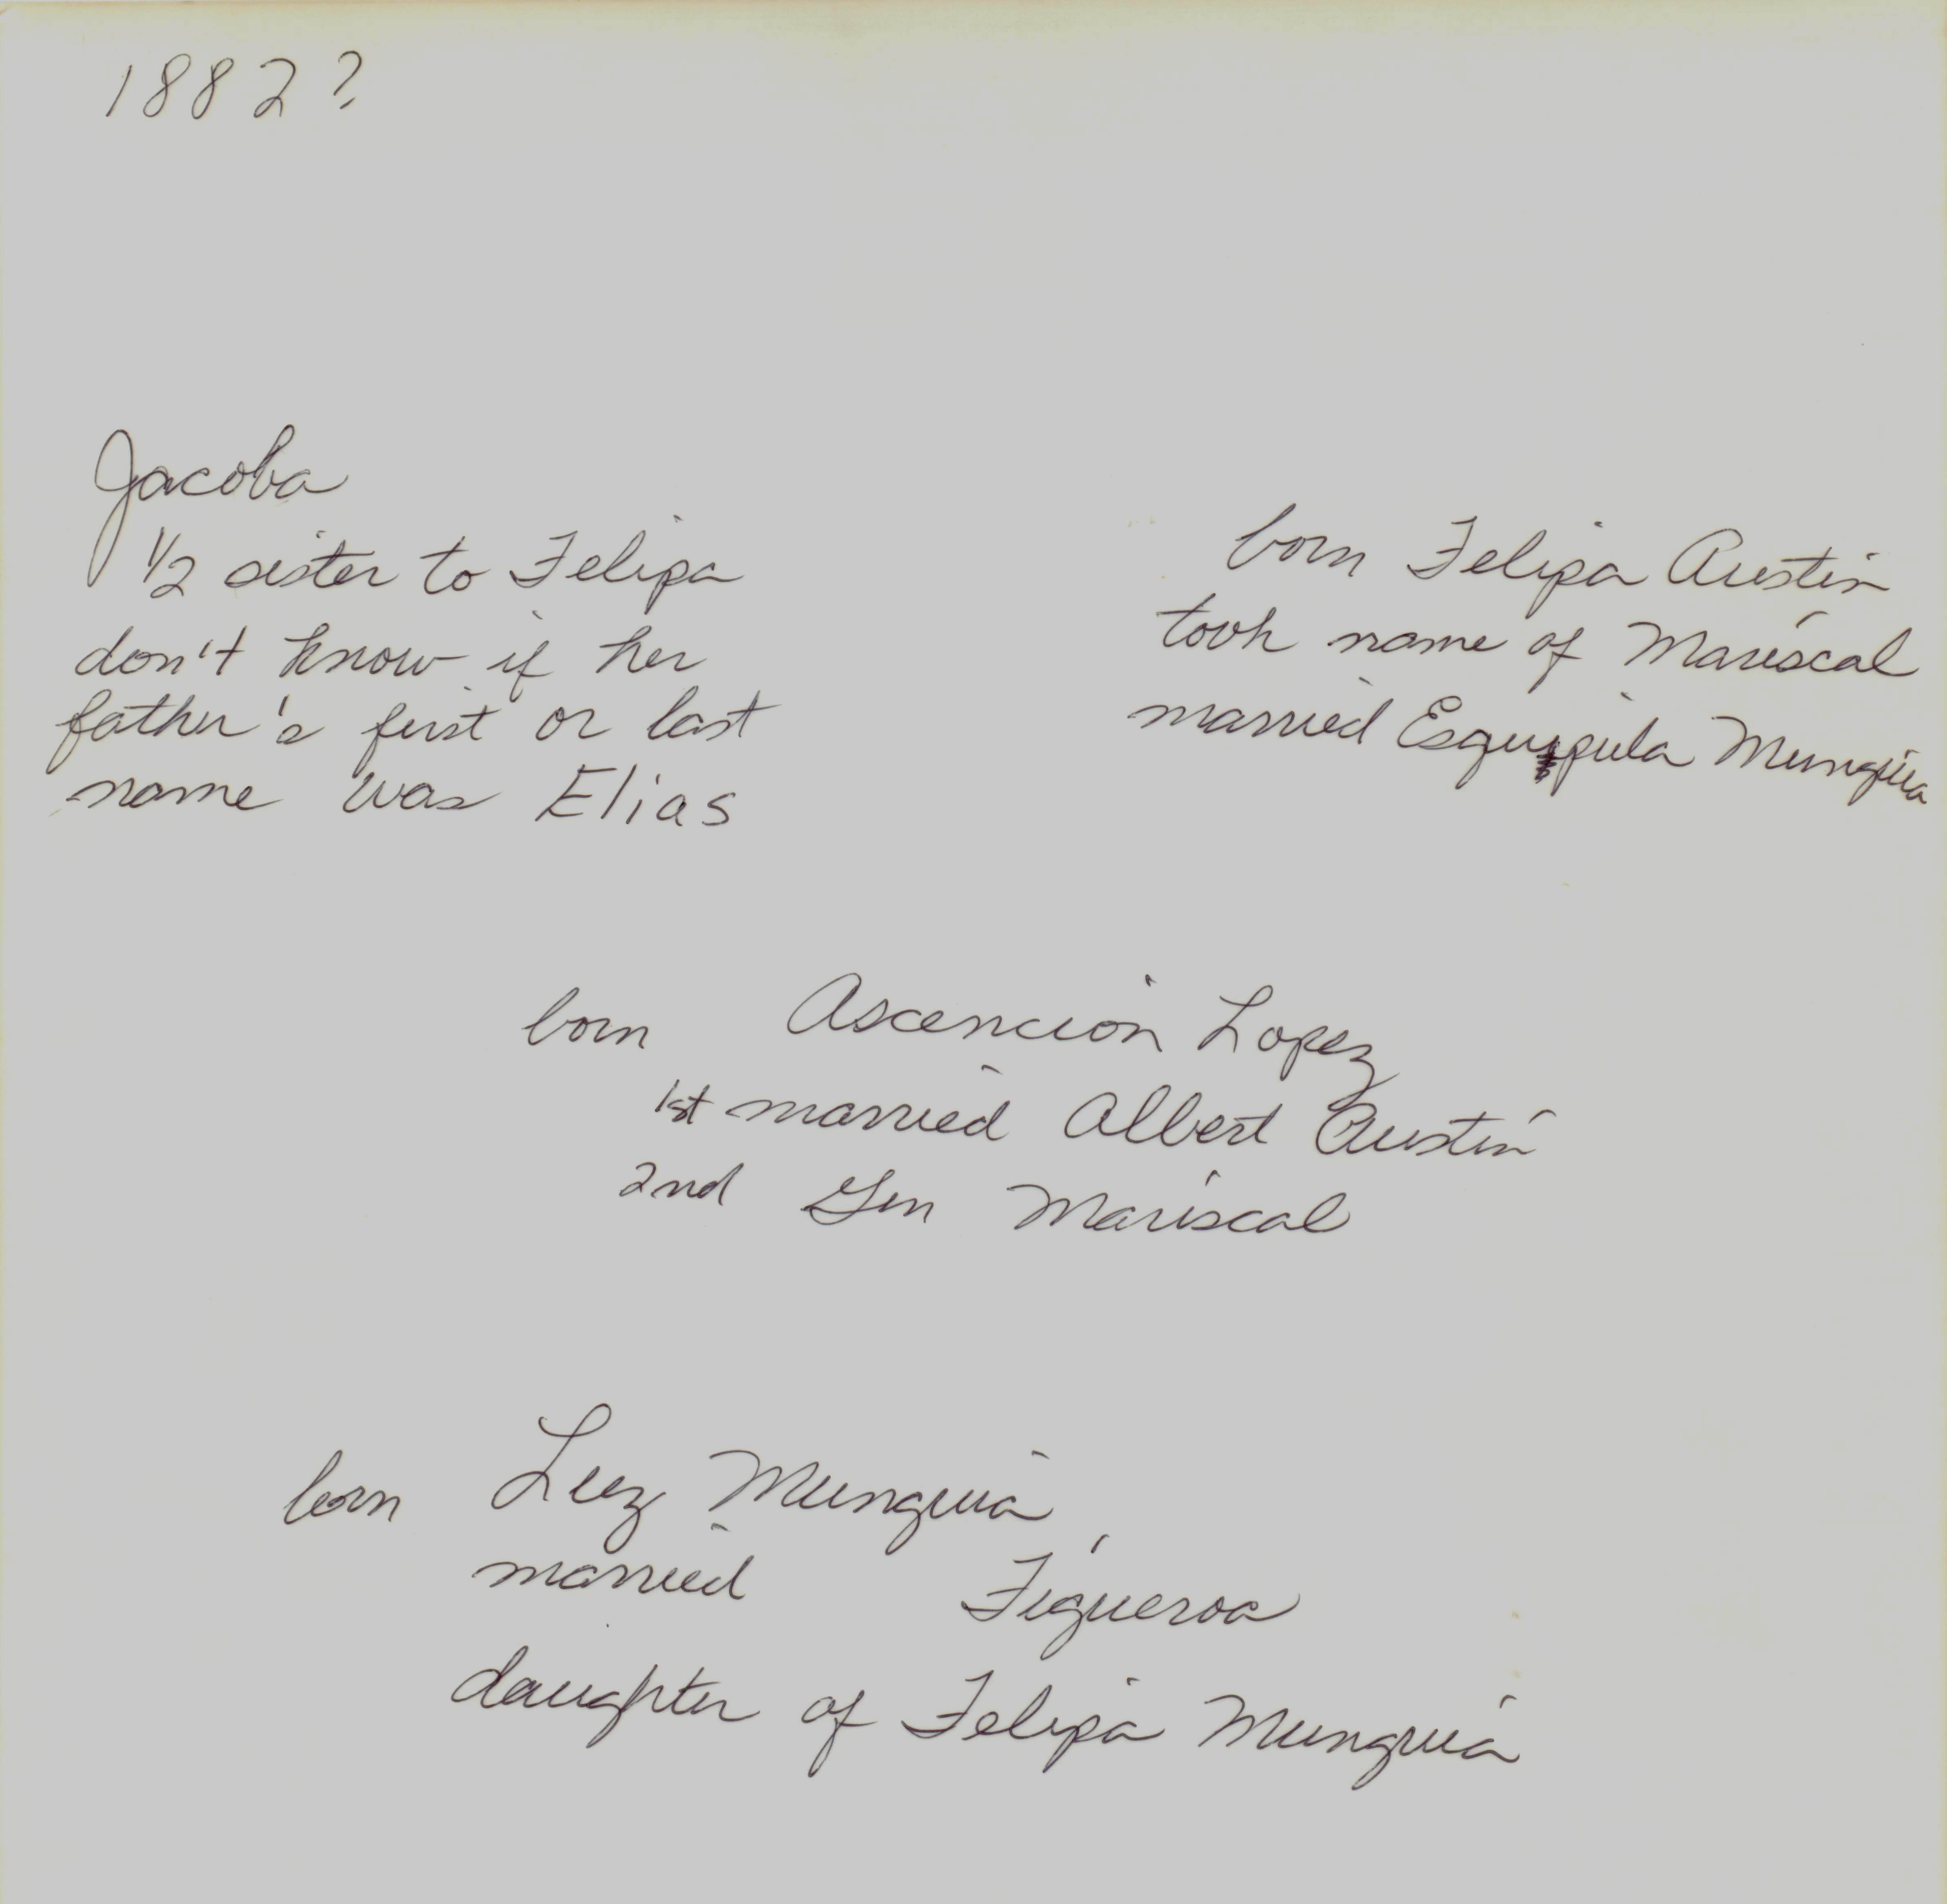 1882?
Jacoba
1/2 sister to Felipa
don't know if her
father's first or last
name was Elias
born Felipa Austin
took name of Mariscal
married Esquipula Munguia
born Ascencion Lopez
1st married Albert Austin
2nd Gen Mariscal
born Luz Munguia
married Figueroa
daughter of Felipa Munguia